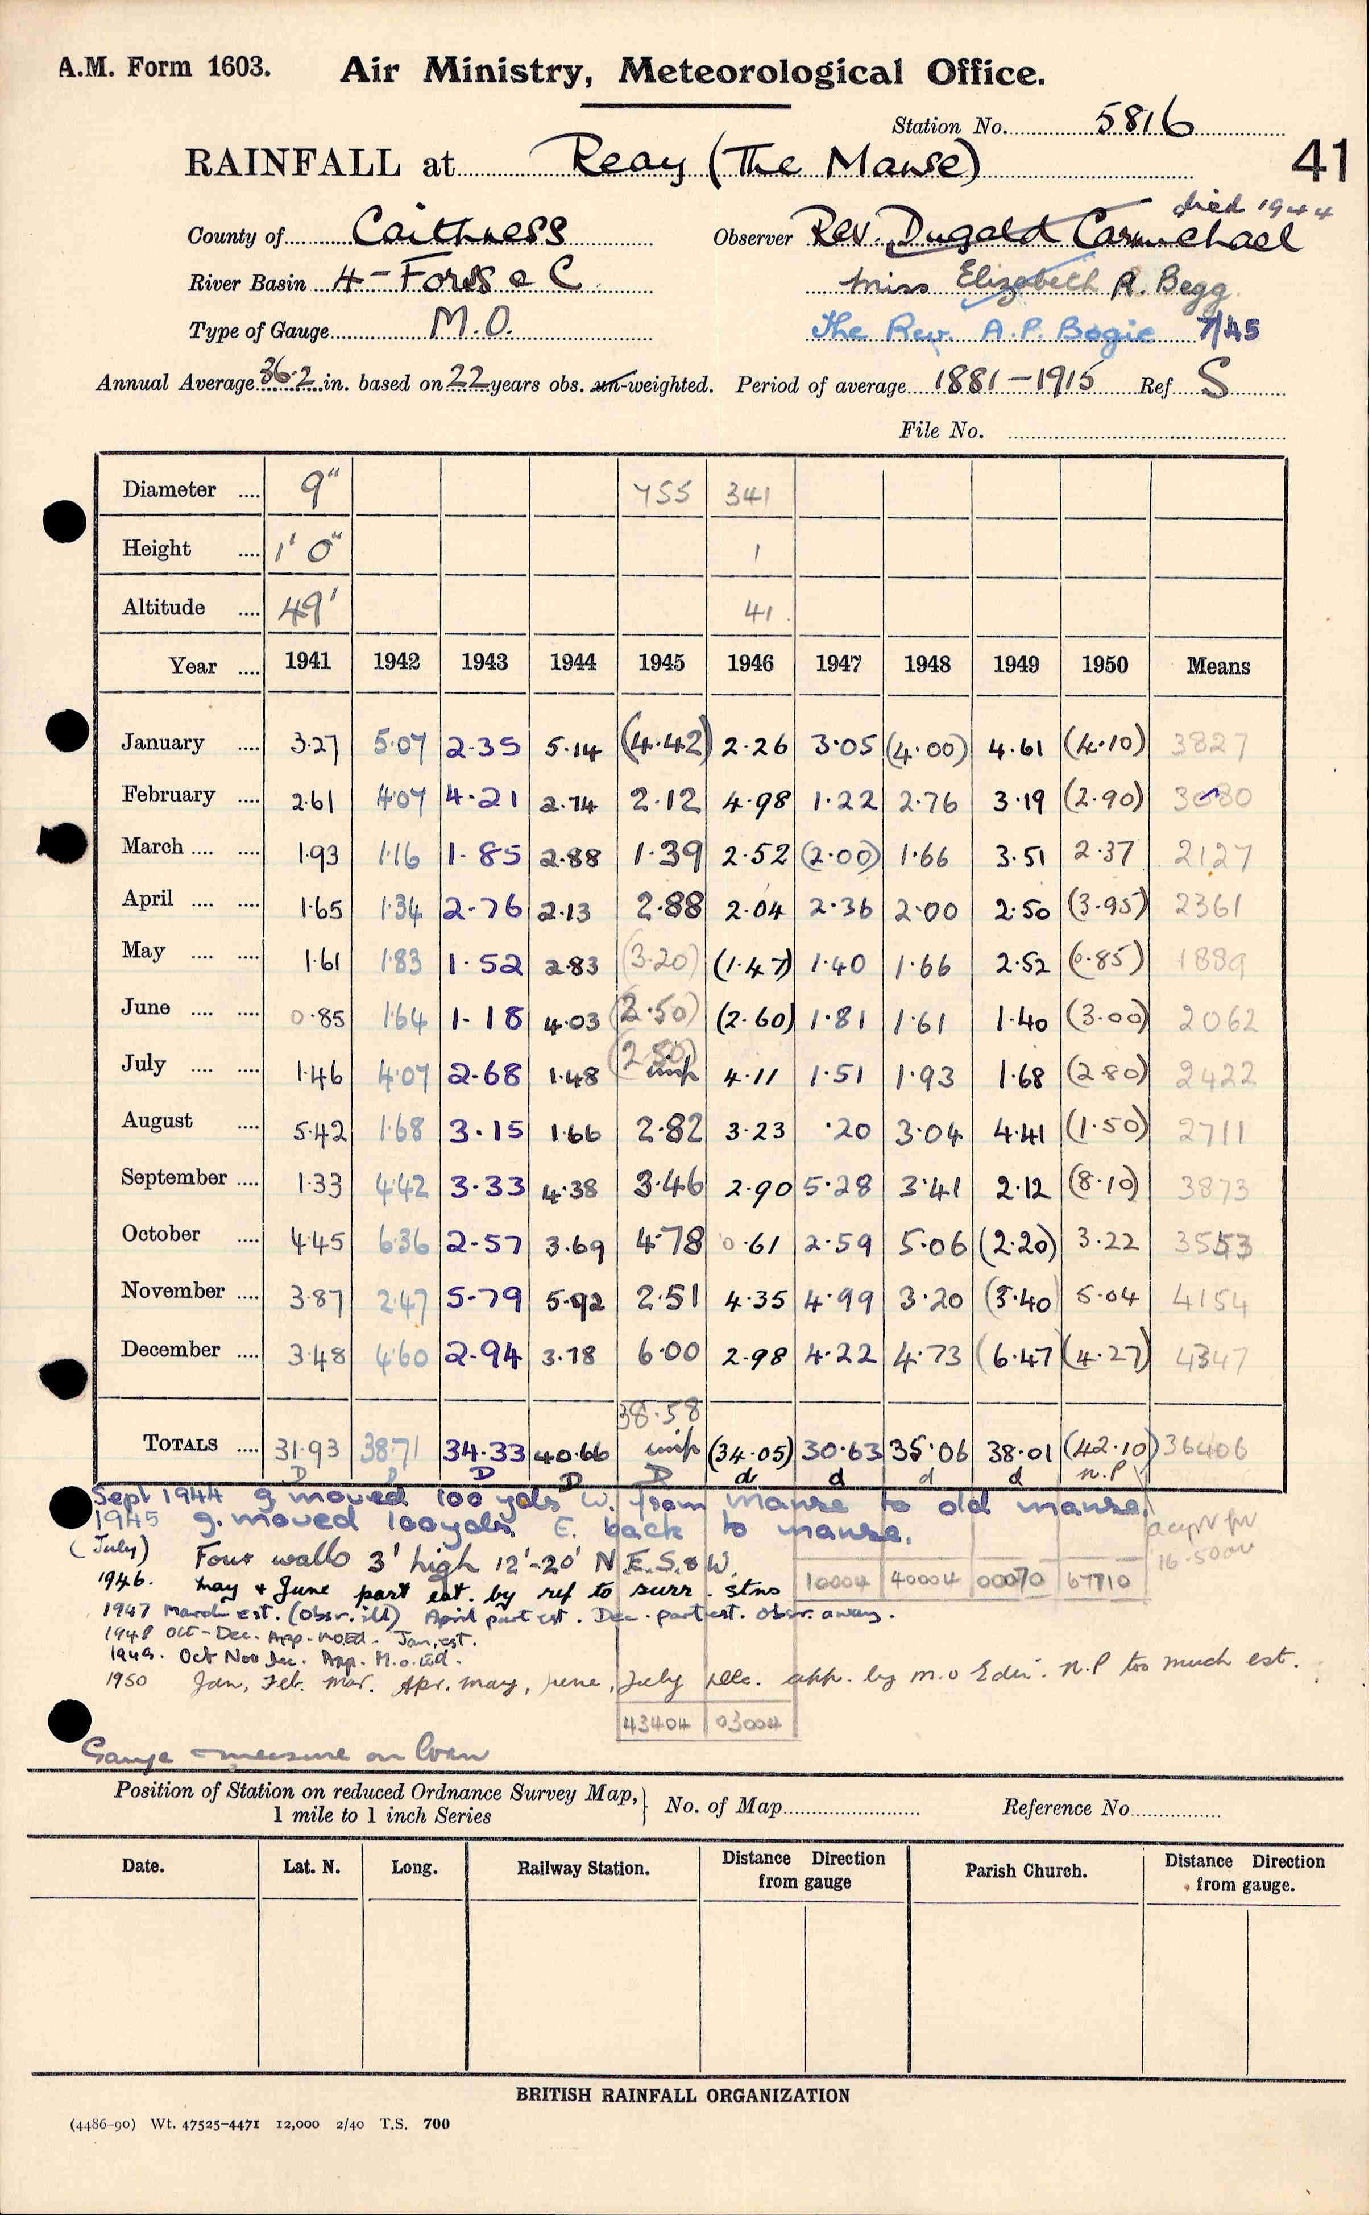 A.M. Form 1603. Air Ministry, Meteorological Office.
Station No. 5816
41
RAINFALL at Reay (The Manse)
died 1944
County of Caithness Observer Rev. Dugald Carmichael
River Basin 4 - Forss & C Miss Elizabeth R. Begg
Type of Gauge M.O. The Rev. A.P. Bogie 7/45
Annual Average 36.2 in. based on 22 years obs. un-weighted. Period of average 1881-1915 Ref S
File No.
Diameter 9" 755 341
Height 1' 0" 1
Altitude 49' 41
Year 1941 1942 1943 1944 1945 1946 1947 1948 1949 1950 Means
January 3.27 5.07 2.35 5.14 (4.42) 2.26 3.05 (4.00) 4.61 (4.10) 3827
February 2.61 4.07 4.21 2.74 2.12 4.98 1.22 2.76 3.19 (2.90) 3080
March 1.93 1.16 1.85 2.88 1.39 2.52 (2.00) 1.66 3.51 2.37 2127
April 1.65 1.34 2.76 2.13 2.88 2.04 2.36 2.00 2.50 (3.95) 2361
May 1.61 1.83 1.52 2.83 (3.20) (1.47) 1.40 1.66 2.52 (0.85) 1889
June 0.85 1.64 1.18 4.03 (2.50) (2.60) 1.81 1.61 1.40 (3.00) 2062
July 1.46 4.07 2.68 1.48 (2.50) 4.11 1.51 1.93 1.68 (2.80) 2422
August 5.42 1.68 3.15 1.66 2.82 3.23 .20 3.04 4.41 (1.50) 2711
September 1.33 4.42 3.33 4.38 3.46 2.90 5.28 3.41 2.12 (8.10) 3873
October 4.45 6.36 2.57 3.69 4.78 0.61 2.59 5.06 (2.20) 3.22 3553
November 3.87 2.47 5.79 5.92 2.51 4.35 4.99 3.20 (3.40) 5.04 4154
December 3.48 4.60 2.94 3.78 6.00 2.98 4.22 4.73 (6.47) (4.27) 4347
38.58
TOTALS 31.93 38.71 34.33 40.66 (34.05) 30.63 35.06 38.01 (42.10) 36406
D D D D D d d d d n.P
Sept 1944 g. moved 100 yds W. from Manse to old manse.
1945 g. moved 100 yds E. back to manse.
(July) Four walls 3' high 12'-20' N.E.S. & W.
10004 40004 00070 67710
1946. May & June part est. by ref to surr. stns
1947 March est. (Obsr. ill) April part est. Dec. part est. obsr. away.
1948 Oct-Dec. App. M.O.Ed. Jan. est.
1949. Oct Nov Dec. App. M.O. Ed.
1950 Jan, Feb. Mar. Apr. May, June, July Dec. app. by M.O Edin. N.P too much est.
43404 03004
Gauge & measure on loan
Position of Station on reduced Ordnance Survey Map,
1 mile to 1 inch Series
No. of Map Reference No
Date. Lat. N. Long. Railway Station. Distance Direction
from gauge
Parish Church. Distance Direction
from gauge.
BRITISH RAINFALL ORGANIZATION
(4486-90) Wt. 47525-4471 12,000 2/40 T.S. 700